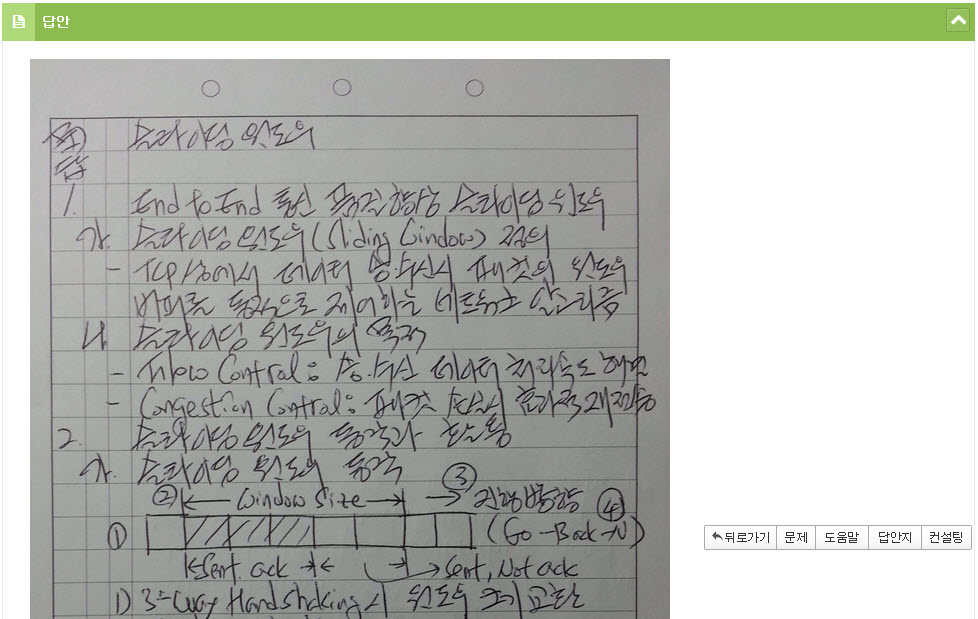 답안
문) 슬라이딩 윈도우
답
1. End to End 통신 품질향상 슬라이딩 윈도우
가. 슬라이딩 윈도우(Sliding Window) 정의
- TCP상에서 데이터 송.수신시 패킷의 윈도우
버퍼를 동적으로 제어하는 네트워크 알고리즘
나. 슬라이딩 윈도우의 목적
- Flow Control: 송.수신 데이터 처리속도 해결
- Congestion Control: 패킷 손실시 효과적 재전송
2. 슬라이딩 윈도우 동작과
가. 슬라이딩 윈도의 동작
② Window Size ③ 진행방향 ④
① (Go-Back-N)
Sent. ack Sent, Not ack
1) 3-way Handshaking시 윈도우 크기 교환
뒤로가기 문제 도움말 답안지 컨설팅